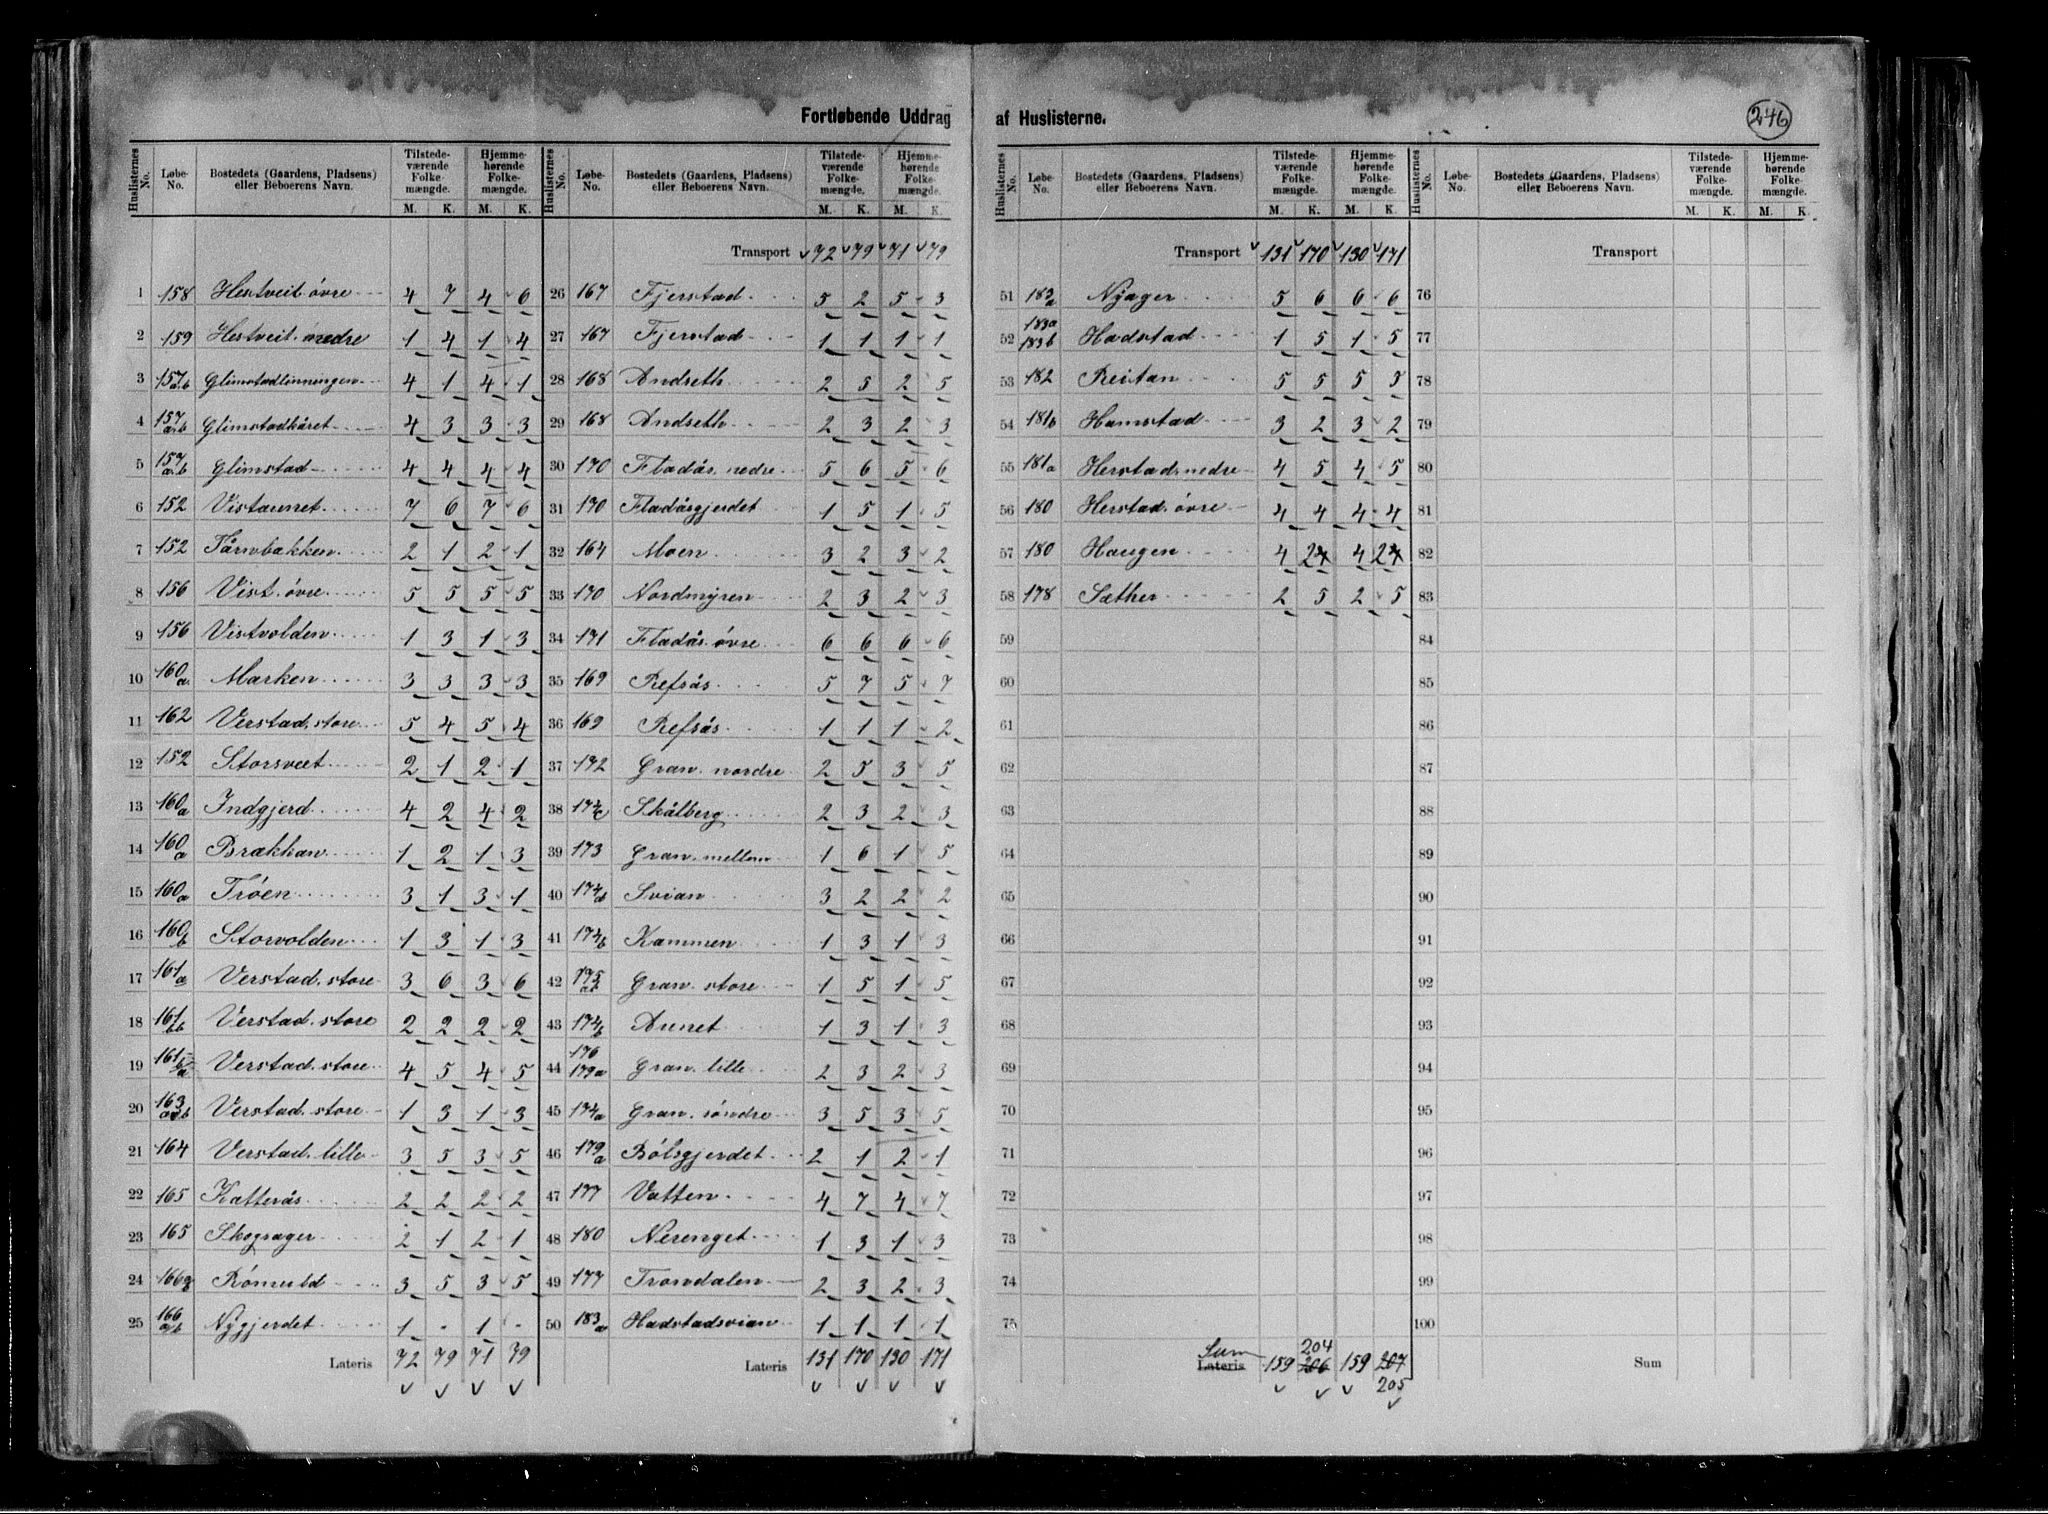 Fortløbende Uddrag af Huslisterne.
246
Huslisternes No. Løbe-No. Bostedets (Gaardens, Pladsens) eller Beboerens Navn. Tilstedeværende Folkemængde. M. K. Hjemmehørende Folkemængde. M. K.
1 158 Hestveit øvre 4 7 4 6
2 159 Hestveit nedre 1 4 1 4
3 157 a.b Glimstadlinningen 4 1 4 1
4 157 a.b Glimstadkåret 4 3 3 3
5 157 a.b Glimstad 4 4 4 4
6 152 Vistaunet 7 6 7 6
7 152 Tårnbækken 2 1 2 1
8 156 Vist. øvre 5 5 5 5
9 156 Vistvolden 1 3 1 3
10 160a Marken 3 3 3 3
11 162 Verstad. store 5 4 5 4
12 152 Storsveet 2 1 2 1
13 160a Indgjerd 4 2 4 2
14 160a Brækkan 1 2 1 3
15 160a Trøen 3 1 3 1
16 160b Storvolden 1 3 1 3
17 161a Verstad. store 3 6 3 6
18 161b Verstad. store 2 2 2 2
19 161 Verstad. store 4 5 4 5
20 163 a.b Verstad. store 1 3 1 3
21 164 Verstad. lille 3 5 3 5
22 165 Katterås 2 2 2 2
23 165 Skogsager 2 1 2 1
24 166 Römuld 3 5 3 5
25 166 a.b Nygjerdet 1 - 1 -
Lateris 72 79 71 79
Huslisternes No. Løbe-No. Bostedets (Gaardens, Pladsens) eller Beboerens Navn. Tilstedeværende Folkemængde. M. K. Hjemmehørende Folkemængde. M. K.
Transport 72 79 71 79
26 167 Fjerstad 5 2 5 3
27 167 Fjerstad 1 1 1 1
28 168 Andseth 2 5 2 5
29 168 Andseth 2 3 2 3
30 170 Fladås. nedre 5 6 5 6
31 170 Fladåsgjerdet 1 5 1 5
32 164 Moen 3 2 3 2
33 170 Nordmyren 2 3 2 3
34 171 Fladås. øvre 6 6 6 6
35 169 Refsås 5 7 5 7
36 169 Refsås 1 1 1 2
37 172 Gran. nordre 2 5 3 5
38 174c Skålberg 2 3 2 3
39 173 Gran. mellem 1 6 1 5
40 174d Svian 3 2 2 2
41 174b Kammen 1 3 1 3
42 175 Gran. store 1 5 1 5
43 174b Aunet 1 3 1 3
44 176 179a Gran. lille 2 3 2 3
45 174a Gran. söndre 3 5 3 5
46 179a Bölsgjerdet 2 1 2 1
47 177 Vatten 4 7 4 7
48 180 Nerenget 1 3 1 3
49 177 Trondalen 2 3 2 3
50 183a Hadstadsvian 1 1 1 1
Lateris 131 170 130 171
Huslisternes No. Løbe-No. Bostedets (Gaardens, Pladsens) eller Beboerens Navn. Tilstedeværende Folkemængde. M. K. Hjemmehørende Folkemængde. M. K.
Transport 131 170 130 171
51 183a Nyager 5 6 6 6
52 183a 183b Hadstad 1 5 1 5
53 182 Reitan 5 5 5 5
54 181b Hamstad 3 2 3 2
55 181a Herstad. nedre 4 5 4 5
56 180 Herstad. øvre 4 4 4 4
57 180 Haugen 4 2 4 2
58 178 Sæther 2 5 2 5
59
60
61
62
63
64
65
66
67
68
69
70
71
72
73
74
75
Sum
Lateris 159 206 159 207
204
205
Huslisternes No. Løbe-No. Bostedets (Gaardens, Pladsens) eller Beboerens Navn. Tilstedeværende Folkemængde. M. K. Hjemmehørende Folkemængde. M. K.
Transport
76
77
78
79
80
81
82
83
84
85
86
87
88
89
90
91
92
93
94
95
96
97
98
99
100
Sum